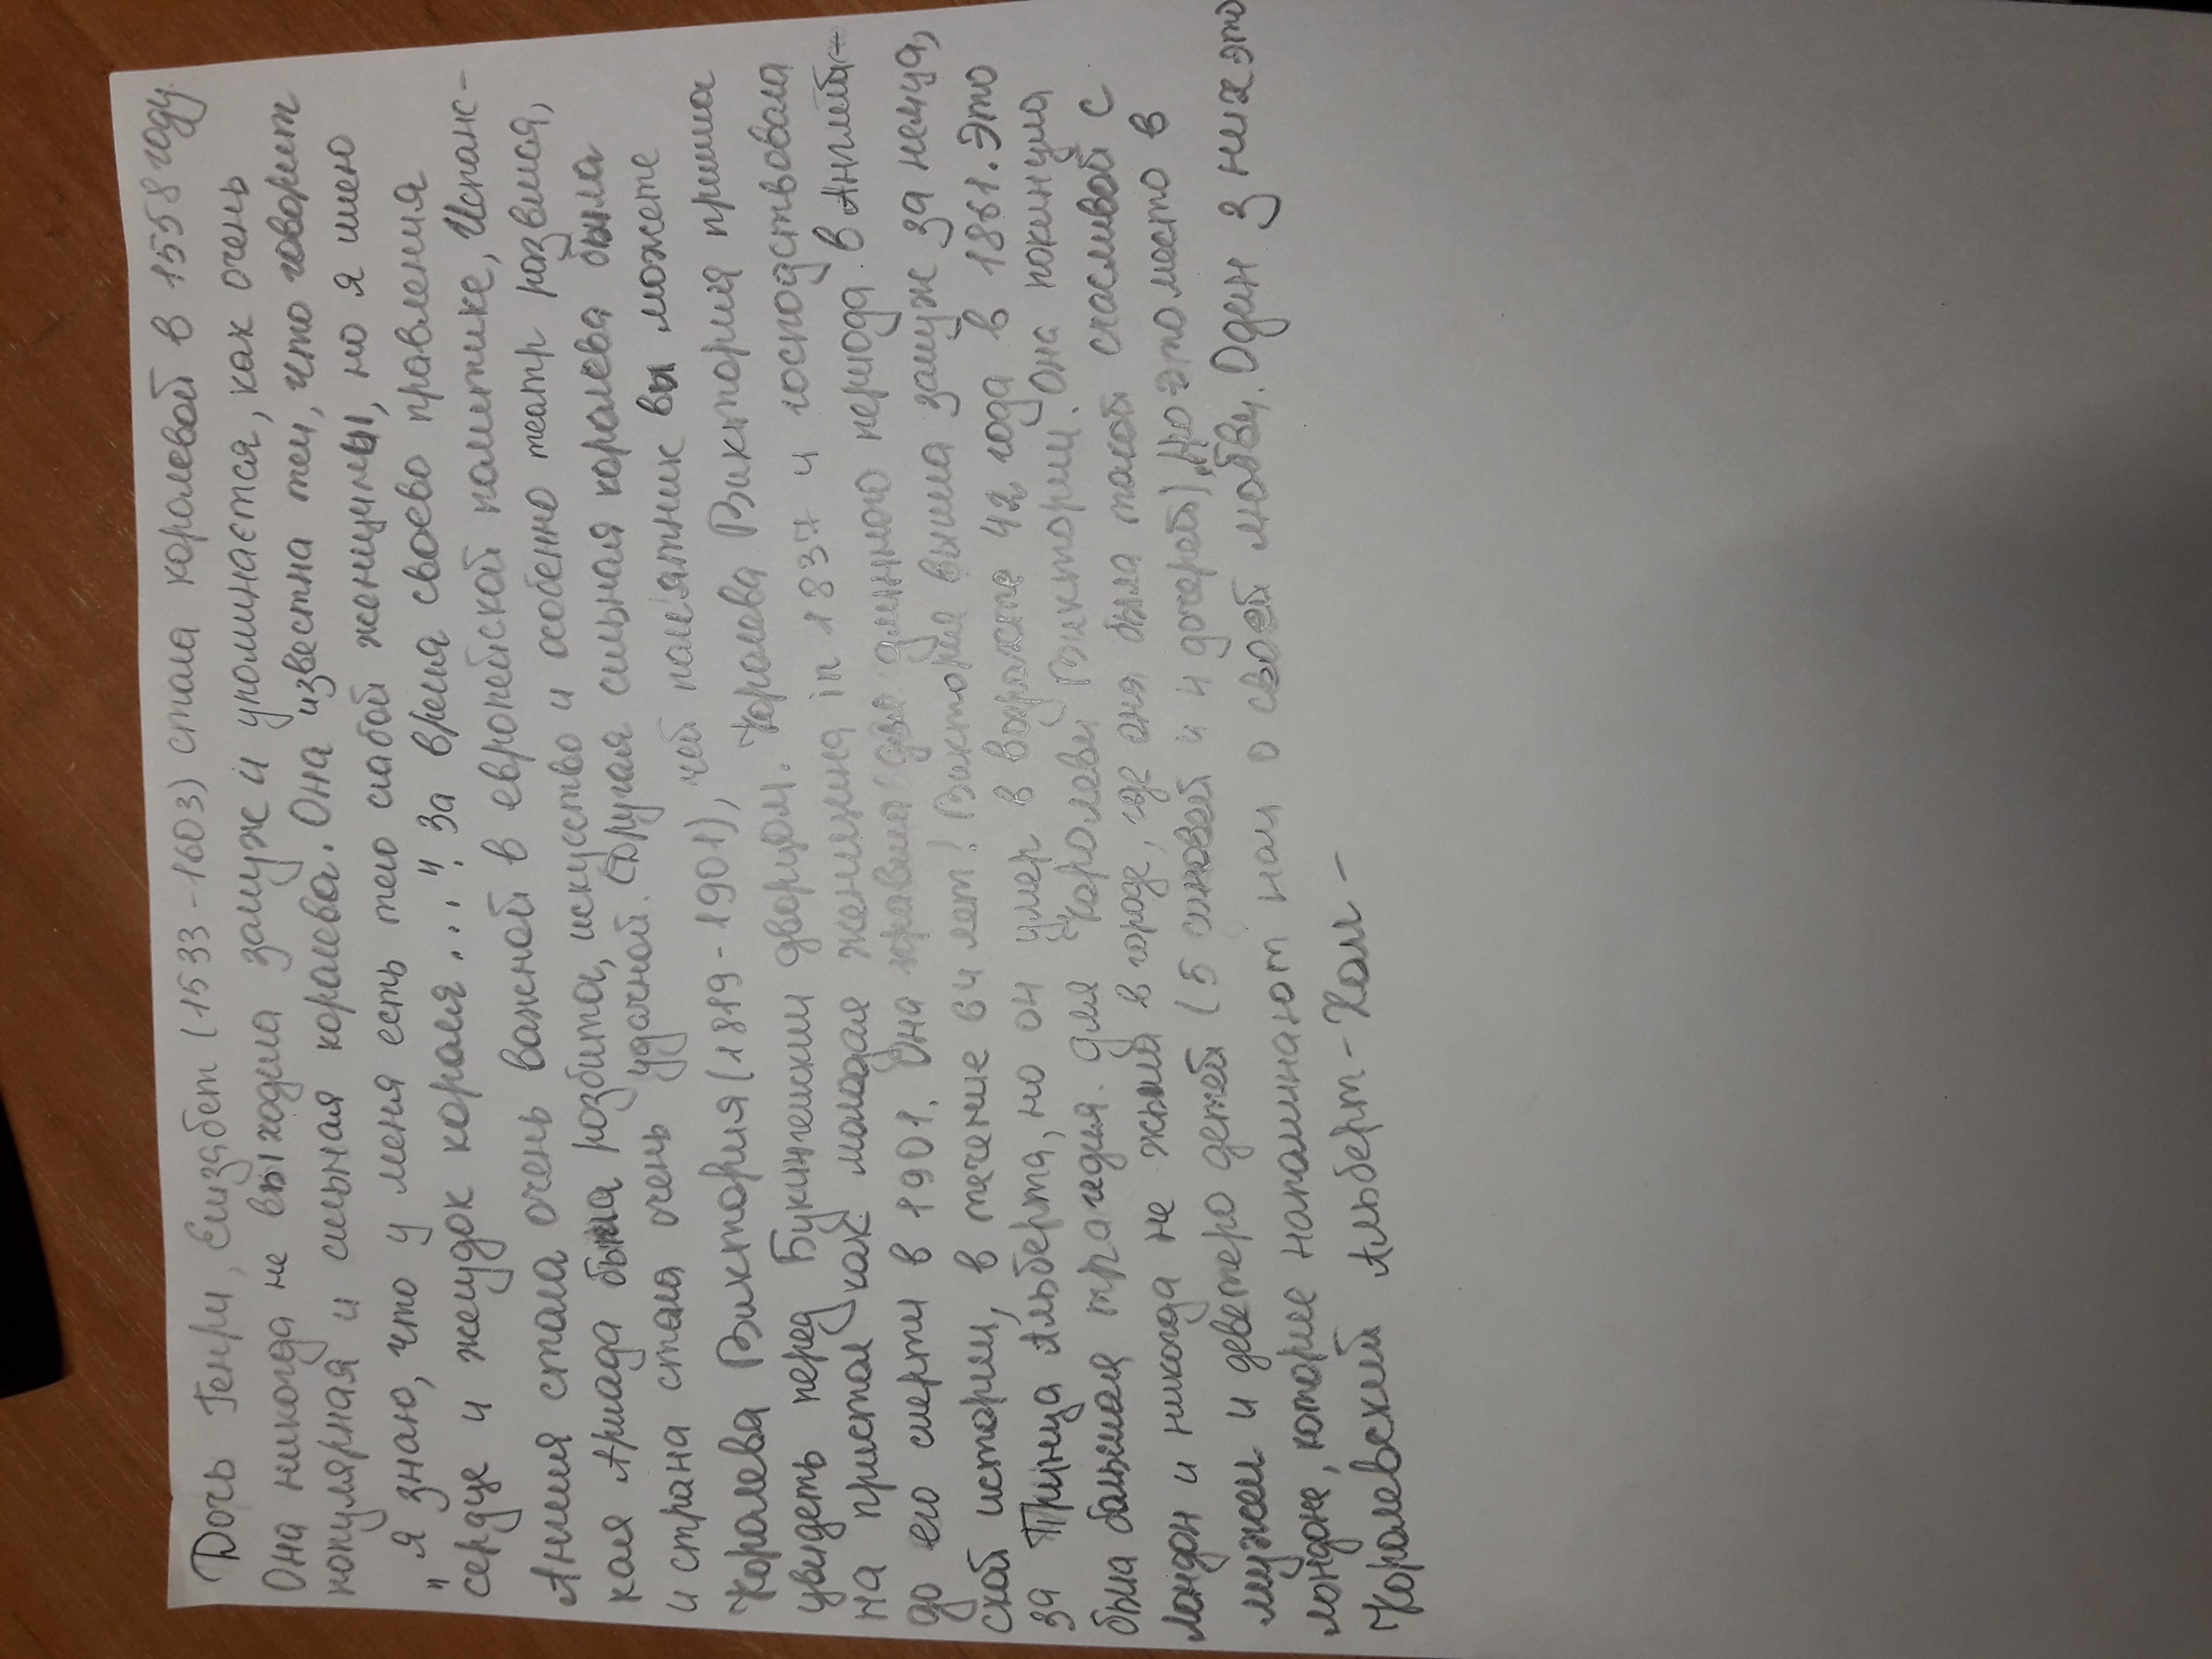 Дочь Генри, Елизабет (1533-1603) стала королевой в 1558 году.
Она никогда не выходила замуж и упоминается, как очень
популярная и сильная королева. Она известна тем, что говорит
"я знаю, что у меня есть тело слабой женщины, но я имею
сердце и желудок короля...". За время своево правления
Англия стала очень важной в европейской политике, Испанс-
кая Армада была розбита, искусство и особенно театр розвился,
и страна стала очень удачной. Другая сильная королева была
Королева Виктория (1819-1901), чей памятник вы можете
увидеть перед Букингемским дворцом. Королева Виктория пришла
на пристол как молодая женщина in 1837 и господствовала
до его смерти в 1901. Она правила самого длинного периода в Английс-
ской истории, в течение 64 лет! Виктория вышла замуж за немца,
за Принца Альберта, но он умер в возрасте 42 года в 1861. Это
была большая трагедия для Королеви Виктории. Она покинула
Лондон и никогда не жила в городе, где она была такой счасливой с
мужем и девятеро детей (5 синовей и 4 дочерей), по это место в
Лондоне, которие напоминают нам о своей любви. Один з них это
Королевский Альберт-Холл-